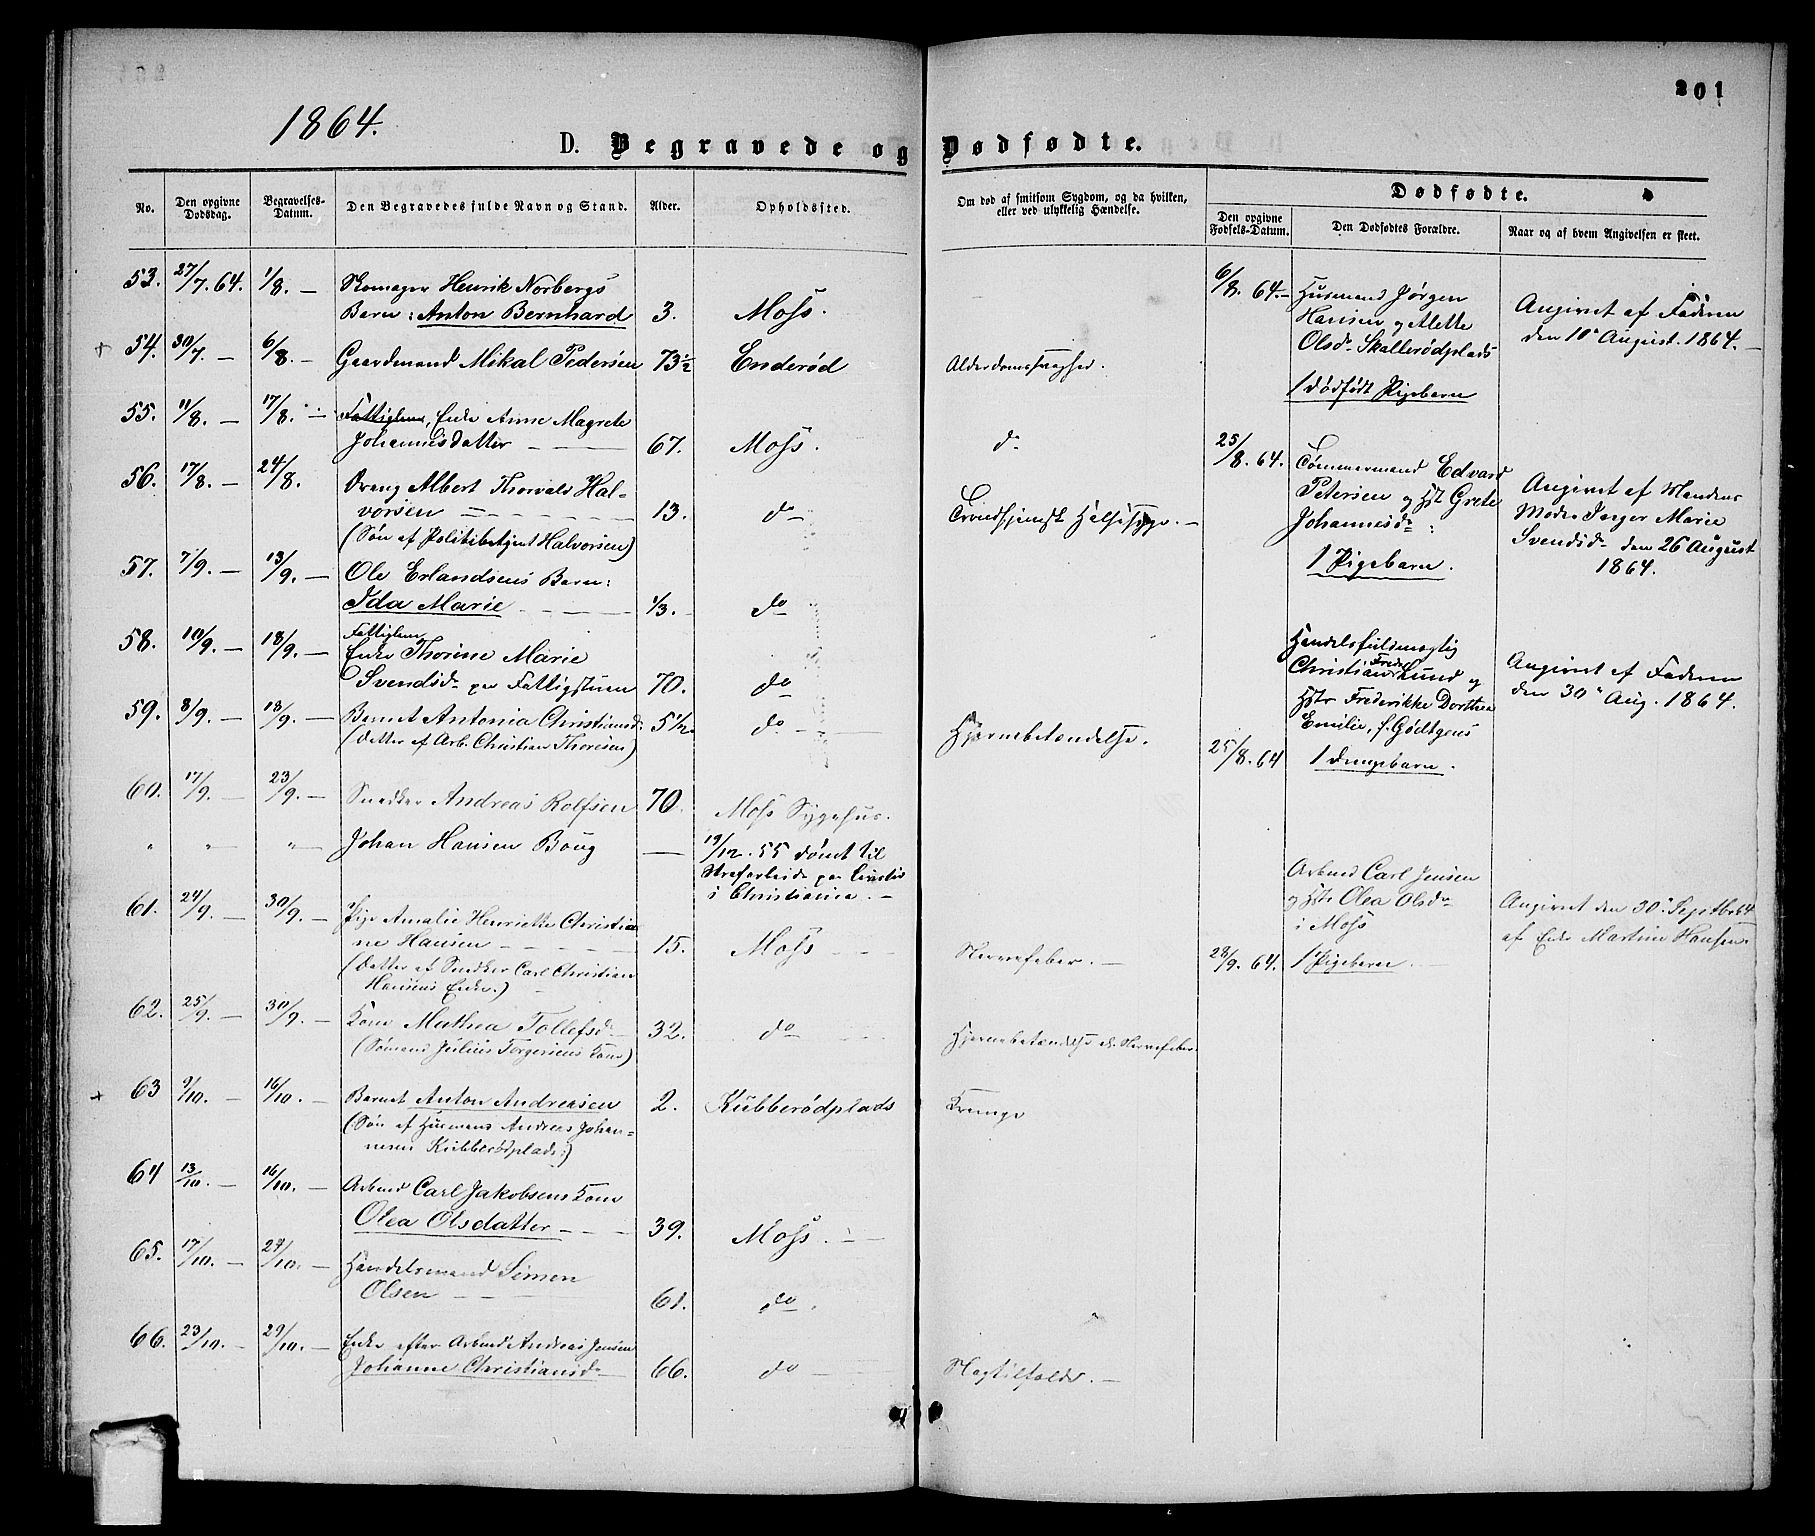 201
1864.
D. Begravede og Dødfødte.
No.
Den opgivne Dødsdag.
Begravelses-Datum.
Den Begravedes fulde Navn og Stand.
Alder.
Opholdssted.
Om død af smitsom Sygdom, og da hvilken, eller ved ulykkelig Hændelse.
Dødfødte.
Den opgivne Fødsels-Datum.
Den Dødfødtes Forældre.
Naar og af hvem Angivelsen er skeet.
53. 27/7. 64. 1/8. — Skomager Henrik Norbergs
Barn: Anton Bernhard 3. Moss.
54. 30/7. — 6/8. — Gaardmand Mikal Pedersen 73½ Enderød Alderdomssvaghed.
55. 11/8. — 17/8. — Fattiglem, Enke Anne Magrete
Johannesdatter — 67. Moss. do
56. 17/8. — 24/8. Dreng Albert Thorvald Hal-
vorsen — 13. do Trondhjemsk Halssyge. —
(Søn af Politibetjent Halvorsen)
57. 7/9. — 13/9. — Ole Erlandsens Barn:
Ida Marie — 1/3. — do
58. 10/9. — 18/9. — Fattiglem
Enke Thorine Marie
Svendsdr paa Fattigstuen 70. do
59. 8/9. — 18/9. — Barnet Antonia Christiansdr 5½. do — Hjernebetændelse.
(Datter af Arb. Christian Thoresen)
60. 17/9. — 23/9. — Snedker Andreas Rolfsen 70. Moss Sygehus.
" " — " — Johan Hansen Boug — 19/12. 55 dømt til
Strafarbeide paa Livstid
i Christiania. —
61. 24/9. — 30/9. — Pige Amalie Henriette Christia-
ne Hansen — 15. Moss — Nervefeber. —
(Datter af Snedker Carl Christian
Hansens Enke.)
62. 25/9. — 30/9. — Kone Mathea Tollefsdr — 32. do Hjernebetændelse el. Nervefeber.
(Sømand Julius Torgersens Kone)
63 9/10. — 16/10. — Barnet Anton Andreasen 2. Kubberødplads Krampe
(Søn af Husmand Andreas Johan-
nesen Kubberødplads:)
64 13/10. — 16/10. — Arbmd Carl Jakobsens Kone
Olea Olsdatter — 39. Moss. —
65. 17/10. — 24/10. — Handelsmand Simen
Olsen — 61. do.
66. 23/10. — 29/10. — Enke efter Arbmd Andreas Jensen
Johanne Christiansdr 66. do — Slagtilfælde. —
6/8. 64. — Husmand Jørgen
Hansen og Alette
Olsdr Skallerødplads
1 dødfødt Pigebarn
Angivet af Faderen
den 10de August. 1864. —
25/8. 64. Tømmermand Edvard
Petersen og Hst Grete
Johannesdr:
1 Pigebarn.
Angivet af Mandens
Moder Inger Marie
Svendsdr den 26 August
1864.
Handelsfuldmægtig
Christian Fredr Lund og
Hstr Frederikke Dorthea
Emilie, f. Gödtgens
25/8. 64 1 Drengebarn.
Angivet af Faderen
den 30te Aug. 1864.
Arbmd Carl Jensen
og Hstr Olea Olsdr
i Moss
23/9. 64. 1 Pigebarn. —
Angivet den 30te Septbr 64
af Enke Martine Hansen.